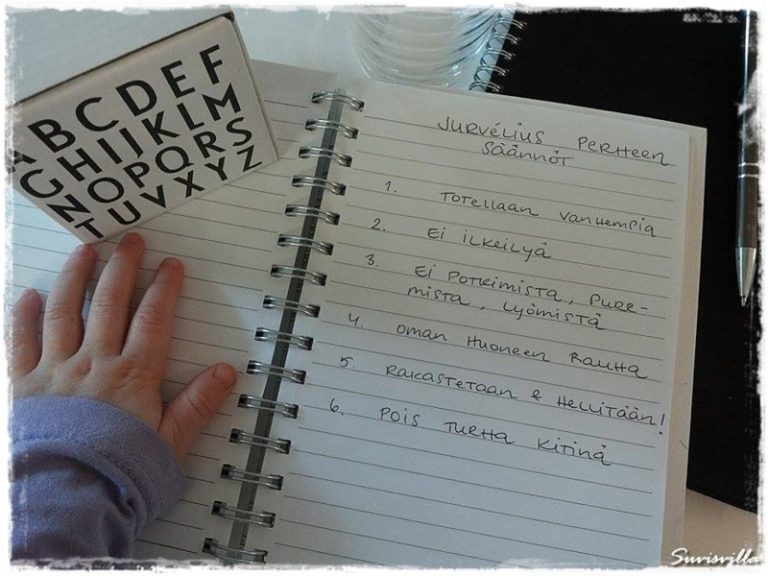 A B C D E F
G H I J K L M
N O P Q R S
T U V X Y Z
JURVÉLIUS PERHEEN
SÄÄNNÖT
1. TOTELLAAN VANHEMPIA
2. EI ILKEILYÄ
3. EI POTKIMISTA, PURE-
MISTA, LYÖMISTÄ
4. OMAN HUONEEN RAUHA
5. RAKASTETAAN & HELLITÄÄN!
6. POIS TURHA KITINÄ
Surisvilla